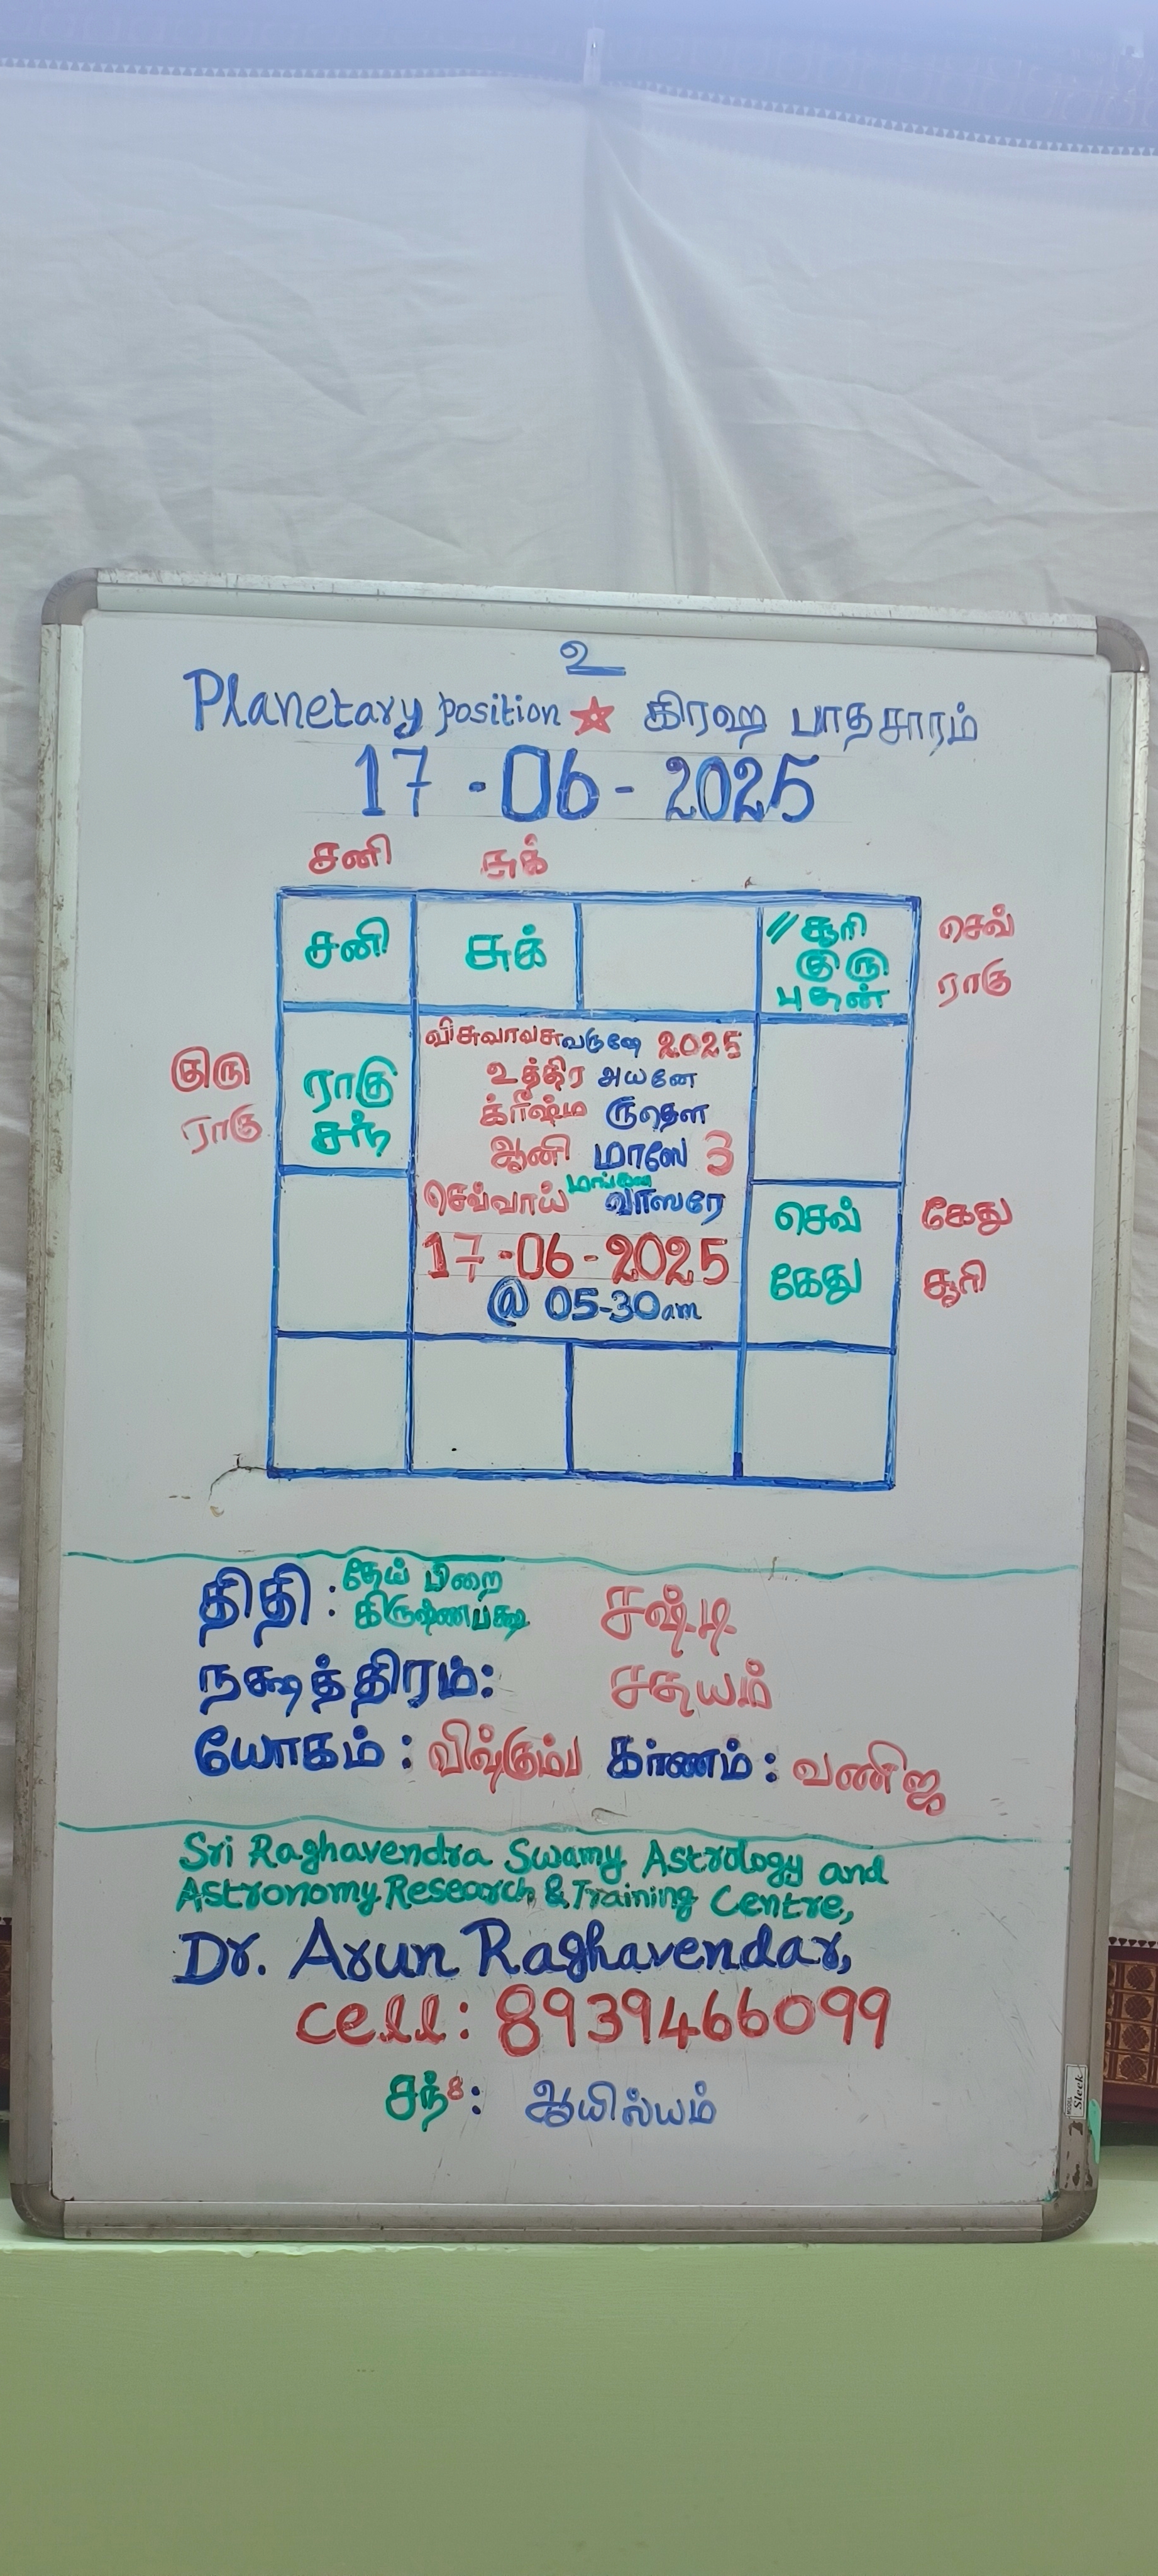 உ
Planetary position ☆ கிரஹ பாதசாரம்
17-06-2025
சனி சுக்
சனி சுக் //சூரி செவ்
குரு ராகு
புதன்
குரு ராகு
ராகு சந்
விசுவாவசுவருஷே 2025
உத்திர அயனே
க்ரீஷ்ம ருதௌ
ஆனி மாஸே 3
மங்கள
செவ்வாய் வாஸரே
17-06-2025
@ 05-30am
செவ் கேது
கேது சூரி
திதி : தேய் பிறை சஷ்டி
கிருஷ்ணபக்ஷ
நக்ஷத்திரம்: சதயம்
யோகம் : விஷ்கும்ப கர்ணம் : வணிஜ
Sri Raghavendra Swamy Astrology and
Astronomy Research & Training Centre,
Dr. Arun Raghavendar,
cell: 8939466099
சந்8: ஆயில்யம்
Sleek